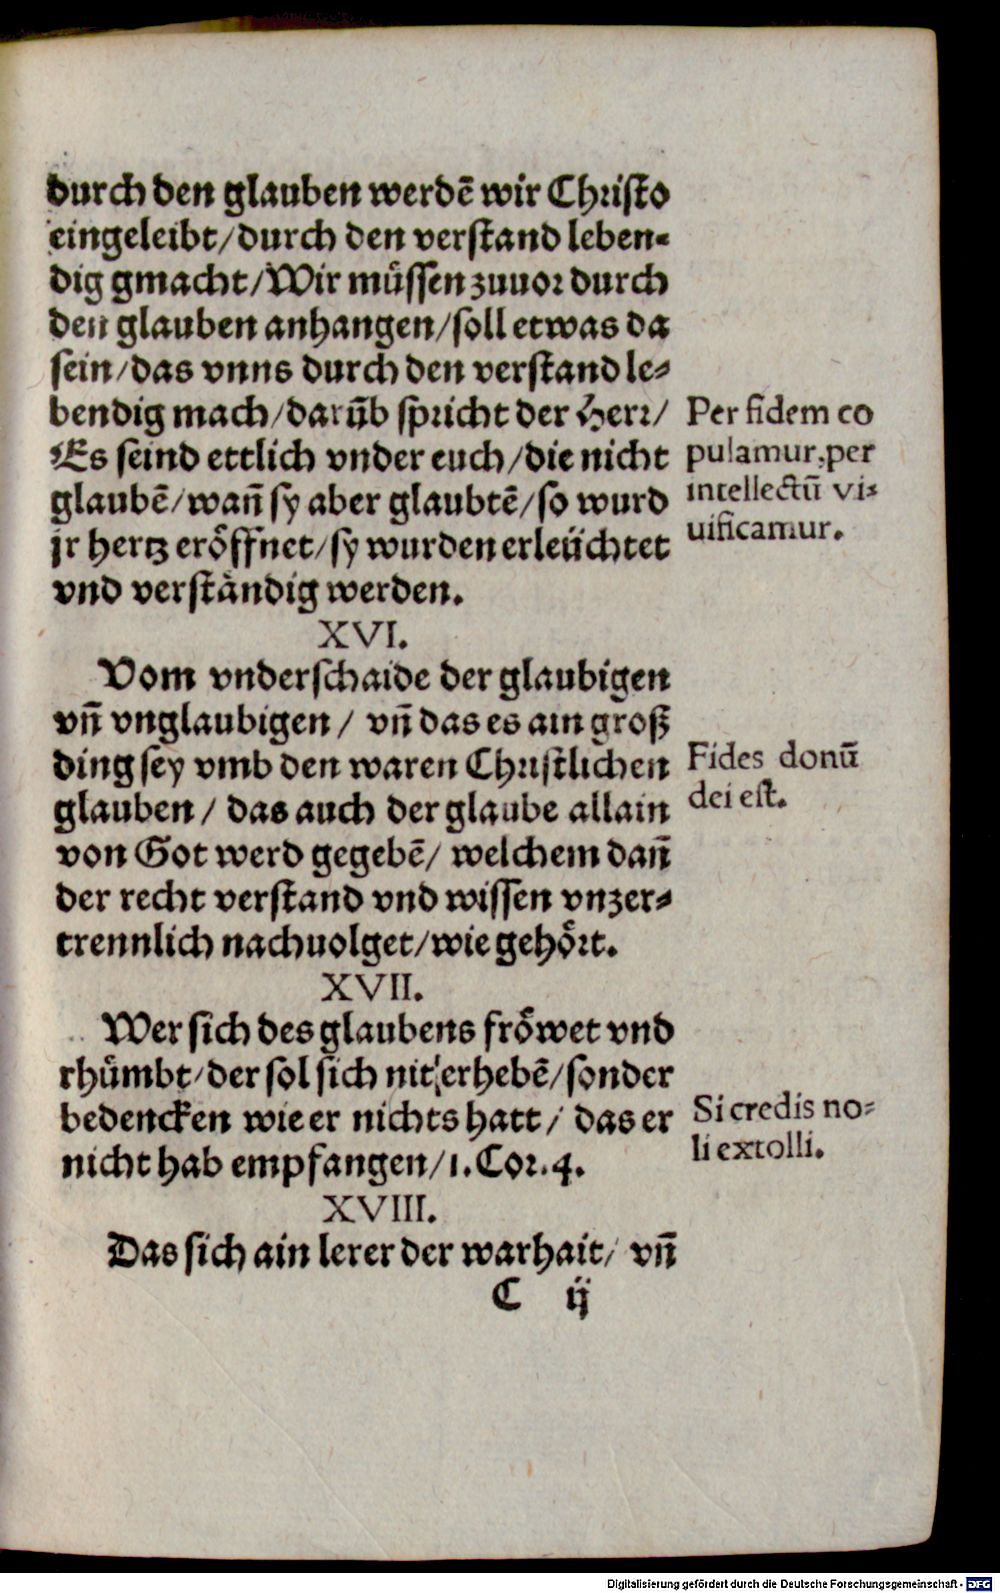 durch den glauben werdē wir Christo
eingeleibt/durch den verstand leben-
dig gmacht/Wir müssen zuuor durch
den glauben anhangen/soll etwas da
sein/das vnns durch den verstand le-
bendig mach/darūb spricht der Herr/
Es seind ettlich vnder euch/die nicht
glaubē/wañ sy aber glaubtē/so wurd
jr hertz eröffnet/sy wurden erleüchtet
vnd verständig werden.
Per fidem co
pulamur, per
intellectū vi-
uificamur.
XVI.
Vom vnderschaide der glaubigen
vñ vnglaubigen/ vñ das es ain groß
ding sey vmb den waren Christlichen
glauben/ das auch der glaube allain
von Got werd gegebē/ welchem dañ
der recht verstand vnd wissen vnzer-
trennlich nachuolget/wie gehört.
Fides donū
dei est.
XVII.
Wer sich des glaubens fröwet vnd
rhümbt/der sol sich nit erhebē/sonder
bedencken wie er nichts hatt/ das er
nicht hab empfangen/1. Cor. 4.
Si credis no-
li extolli.
XVIII.
Das sich ain lerer der warhait/ vñ
C ij
Digitalisierung gefördert durch die Deutsche Forschungsgemeinschaft - DFG